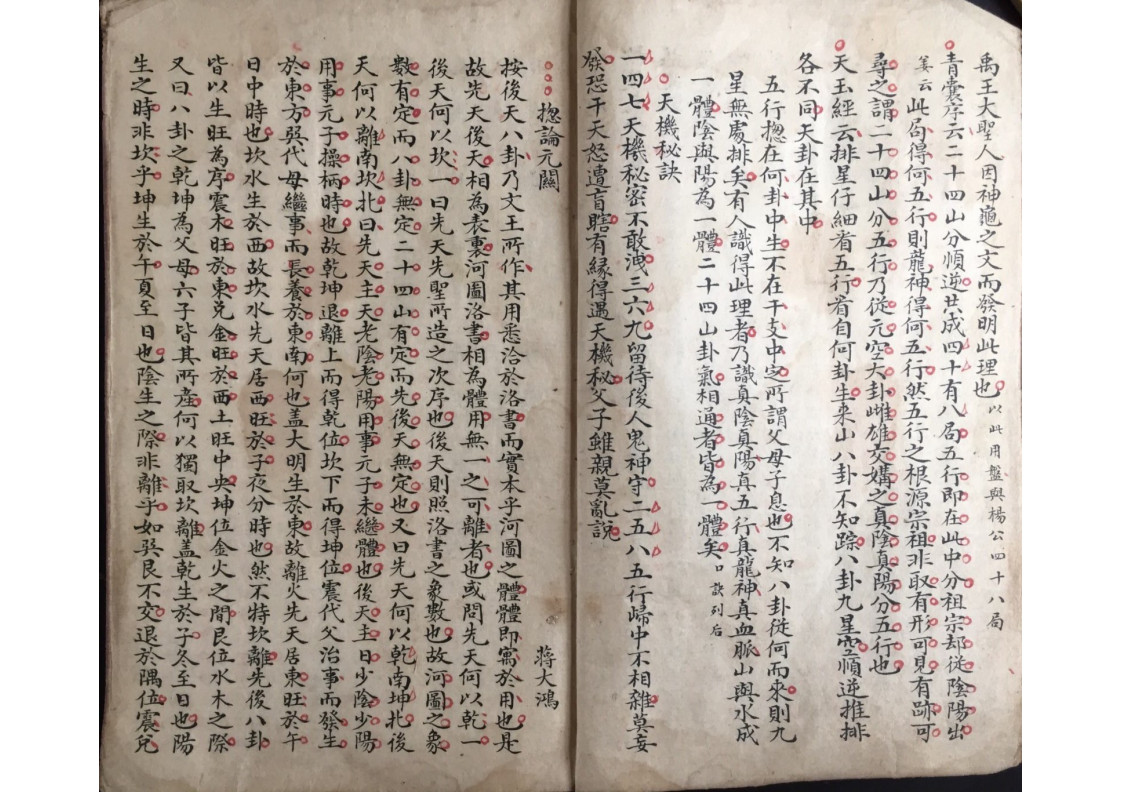 禹王大聖人因神龜之文而發明此理也以此用盤與楊公四十八局
青囊序云二十四山分順逆共成四十有八局五行即在此中分祖宗却從陰陽出
姜云此局得何五行則龍神得何五行然五行之根源宗祖非取有形可見有跡可
尋之謂二十四山分五行乃從元空大卦雌雄交媾之真陰真陽分五行也
天玉經云排星仔細看五行看自何卦生來山八卦不知踪八卦九星空順逆推排
各不同天卦在其中
五行捴在何卦中生不在干支中定所謂父母子息也不知八卦從何而來則九
星無處排矣有人識得此理者乃識真陰真陽真五行真龍神真血脈山與水成
一體陰與陽為一體二十四山卦氣相通者皆為一體矣口訣列后
天機秘訣
一四七天機秘密不敢洩三六九留待後人鬼神守二五八五行歸中不相雜莫妄
發恐干天怒遭盲瞎有緣得遇天機秘父子雖親莫亂說
捴論元關 蔣大鴻
按後天八卦乃文王所作其用悉洽於洛書而實本乎河圖之體體即寓於用也是
故先天後天相為表裏河圖洛書相為體用無一之可離者也或問先天何以乾一
後天何以坎一曰先天先聖所造之次序也後天則照洛書之象數也故河圖之象
數有定而八卦無定二十四山有定而先後天無定也又曰先天何以乾南坤北後
天何以離南坎北曰先天主天老陰老陽用事元子未繼體也後天主日少陰少陽
用事元子操柄時也故乾坤退離上而得乾位坎下而得坤位震代父治事而發生
於東方巽代母繼事而長養於東南何也盖大明生於東故離火先天居東旺於午
日中時也坎水生於西故坎水先天居西旺於子夜分時也然不特坎離先後八卦
皆以生旺為序震木旺於東兌金旺於西土旺中央坤位金火之間艮位水木之際
又曰八卦之乾坤為父母六子皆其所產何以獨取坎離盖乾生於子冬至日也陽
生之時非坎乎坤生於午夏至日也陰生之際非離乎如巽艮不交退於隅位震兌